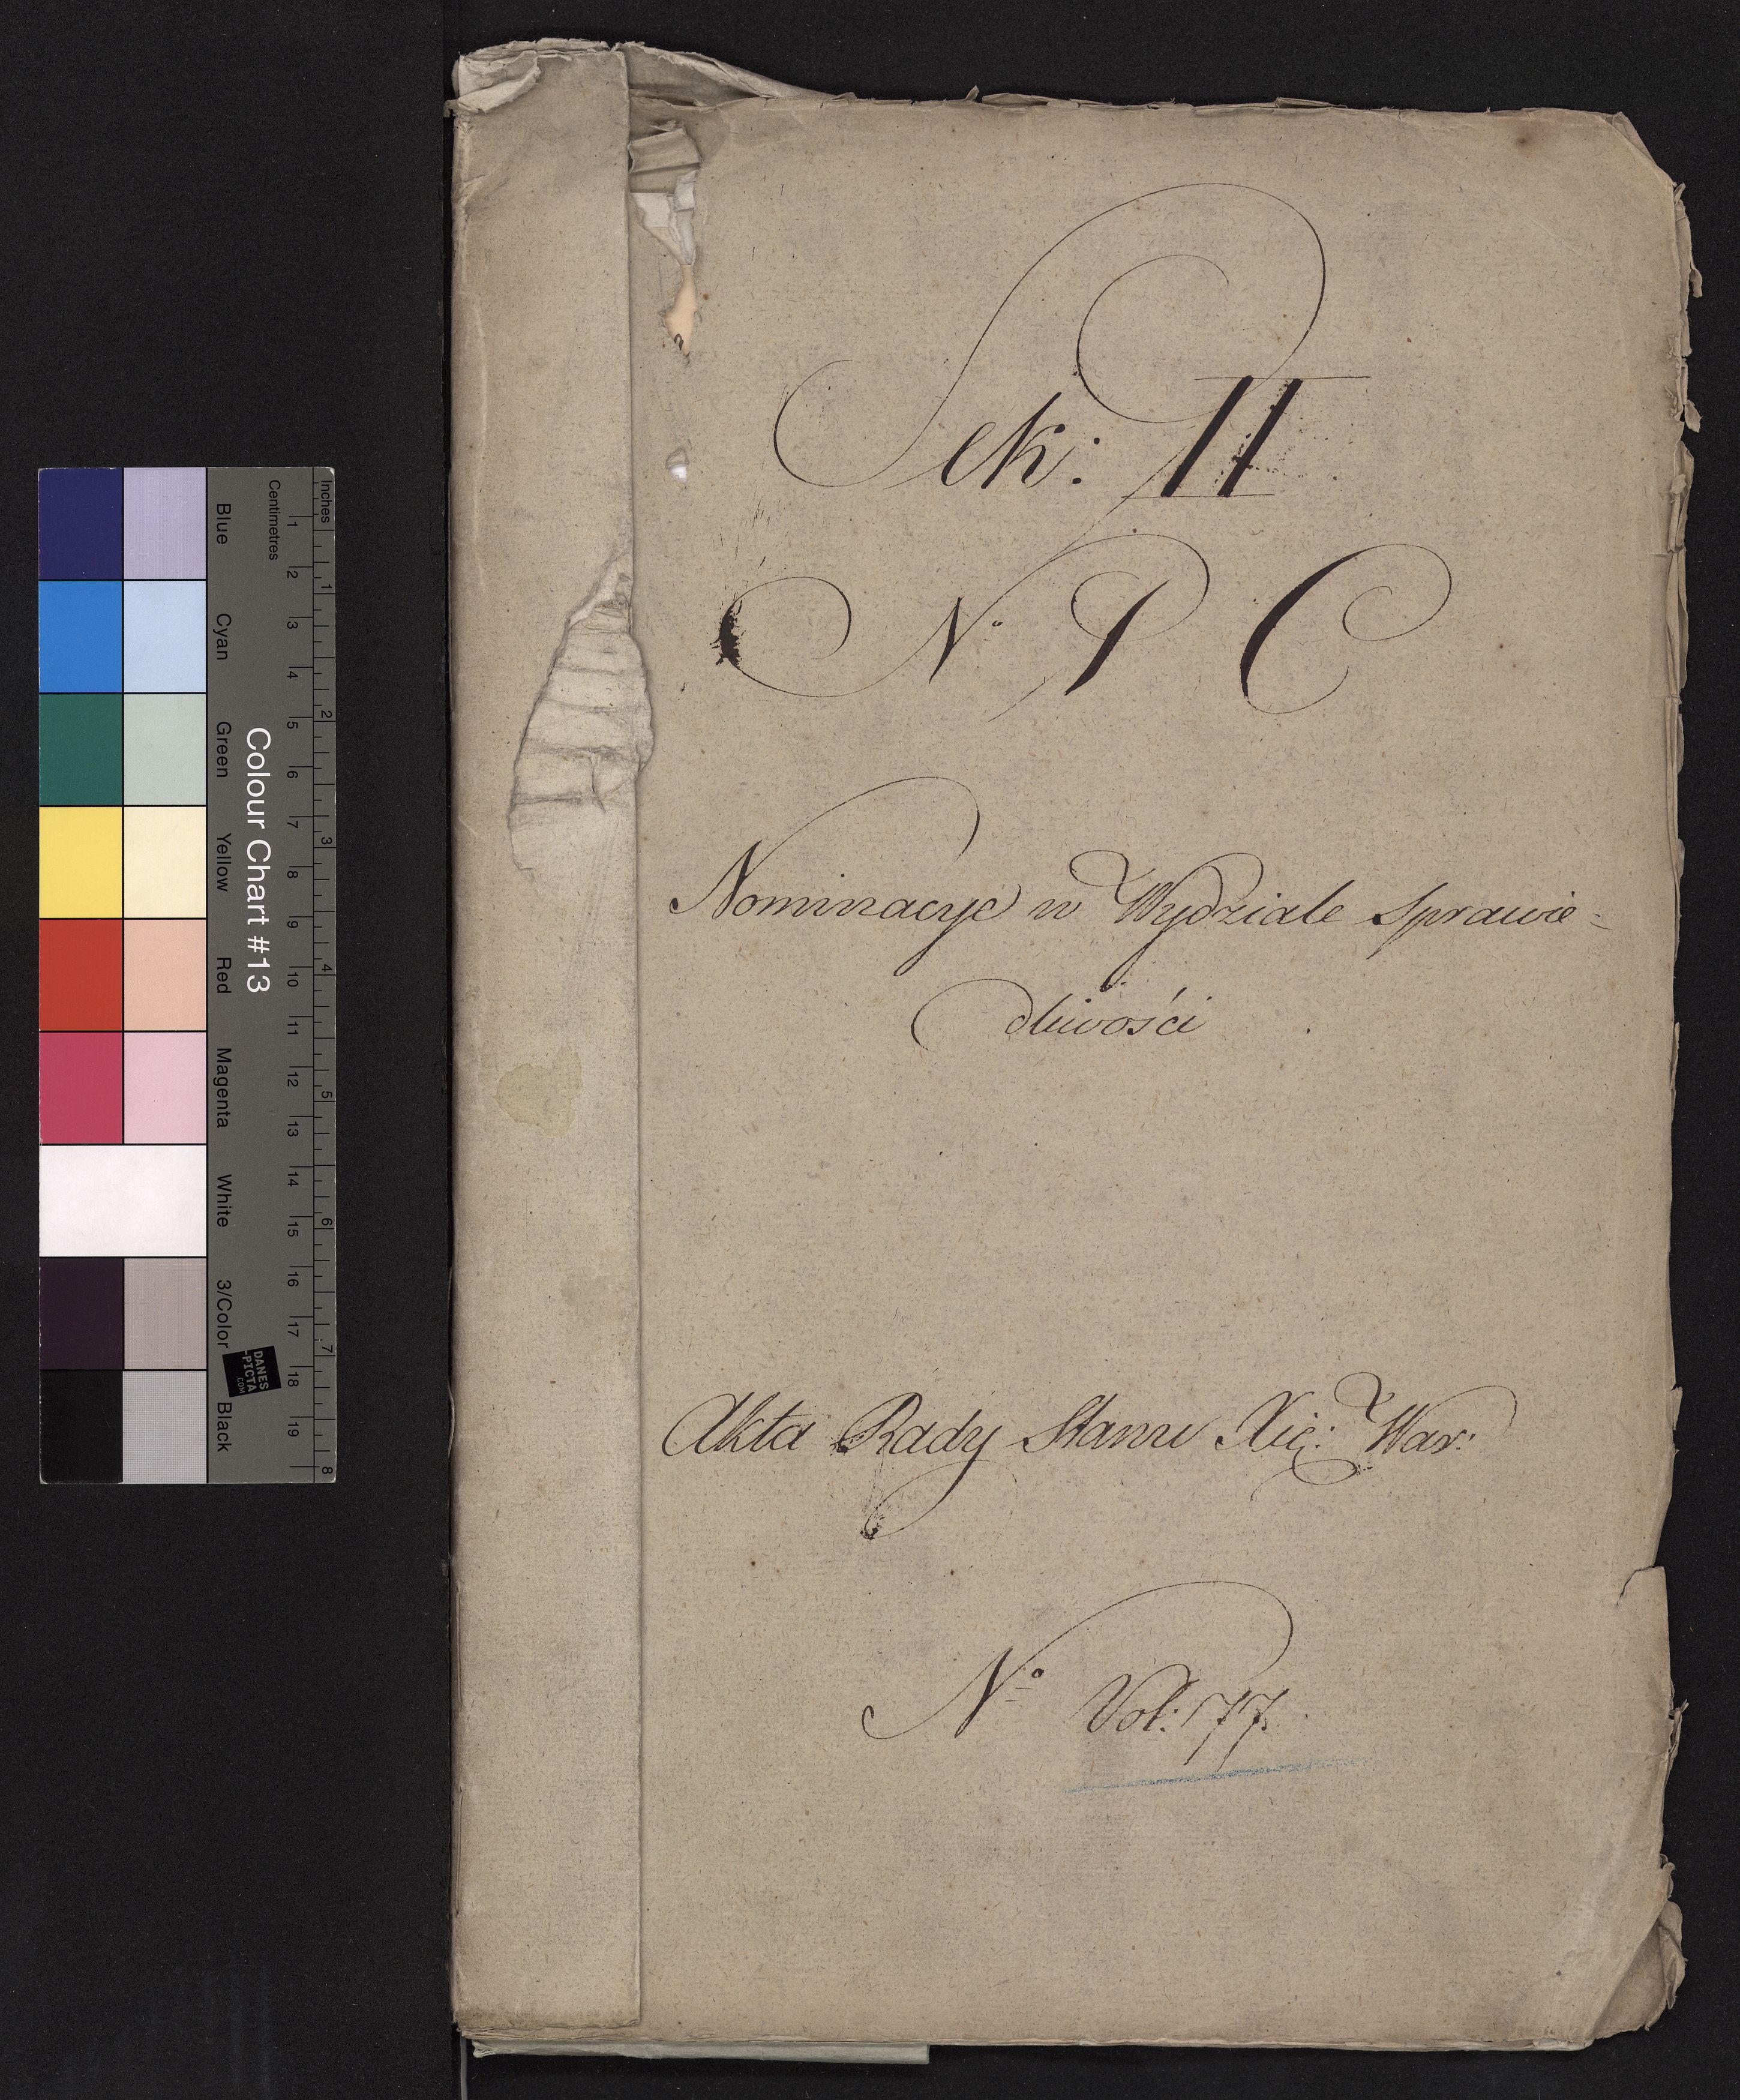 Sek: II
N° 1 C
Nominacye w Wydziale Sprawie-
dliwości
Akta Rady Stanu Xię: War:
N° Vol: 177.
Colour Chart #13
Inches
Centimetres
1 2 3 4 5 6 7 8
1 2 3 4 5 6 7 8 9 10 11 12 13 14 15 16 17 18 19
Blue Cyan Green Yellow Red Magenta White 3/Color Black
DANES
-PICTA
.COM